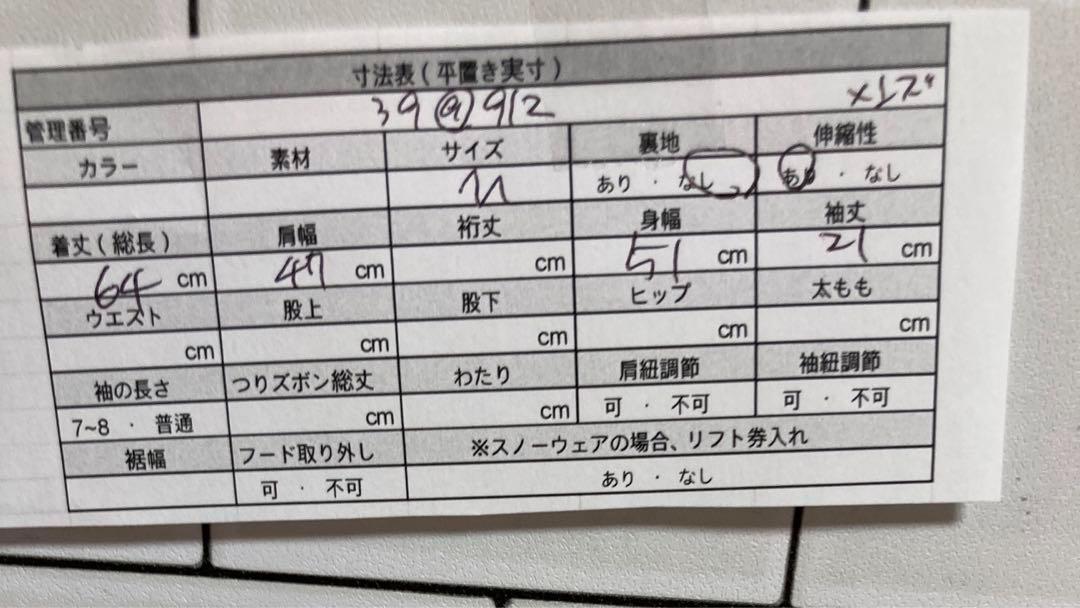 寸法表(平置き実寸)
管理番号 39@912
カラー 素材 サイズ 裏地 伸縮性
あり ・ なし あり ・ なし
着丈(総長) 肩幅 裄丈 身幅 袖丈
64 cm 47 cm cm 51 cm 21 cm
ウエスト 股上 股下 ヒップ 太もも
cm cm cm cm cm
袖の長さ つりズボン総丈 わたり 肩紐調節 袖紐調節
7~8 ・ 普通 cm cm 可 ・ 不可 可 ・ 不可
裾幅 フード取り外し ※スノーウェアの場合、リフト券入れ
可 ・ 不可 あり ・ なし